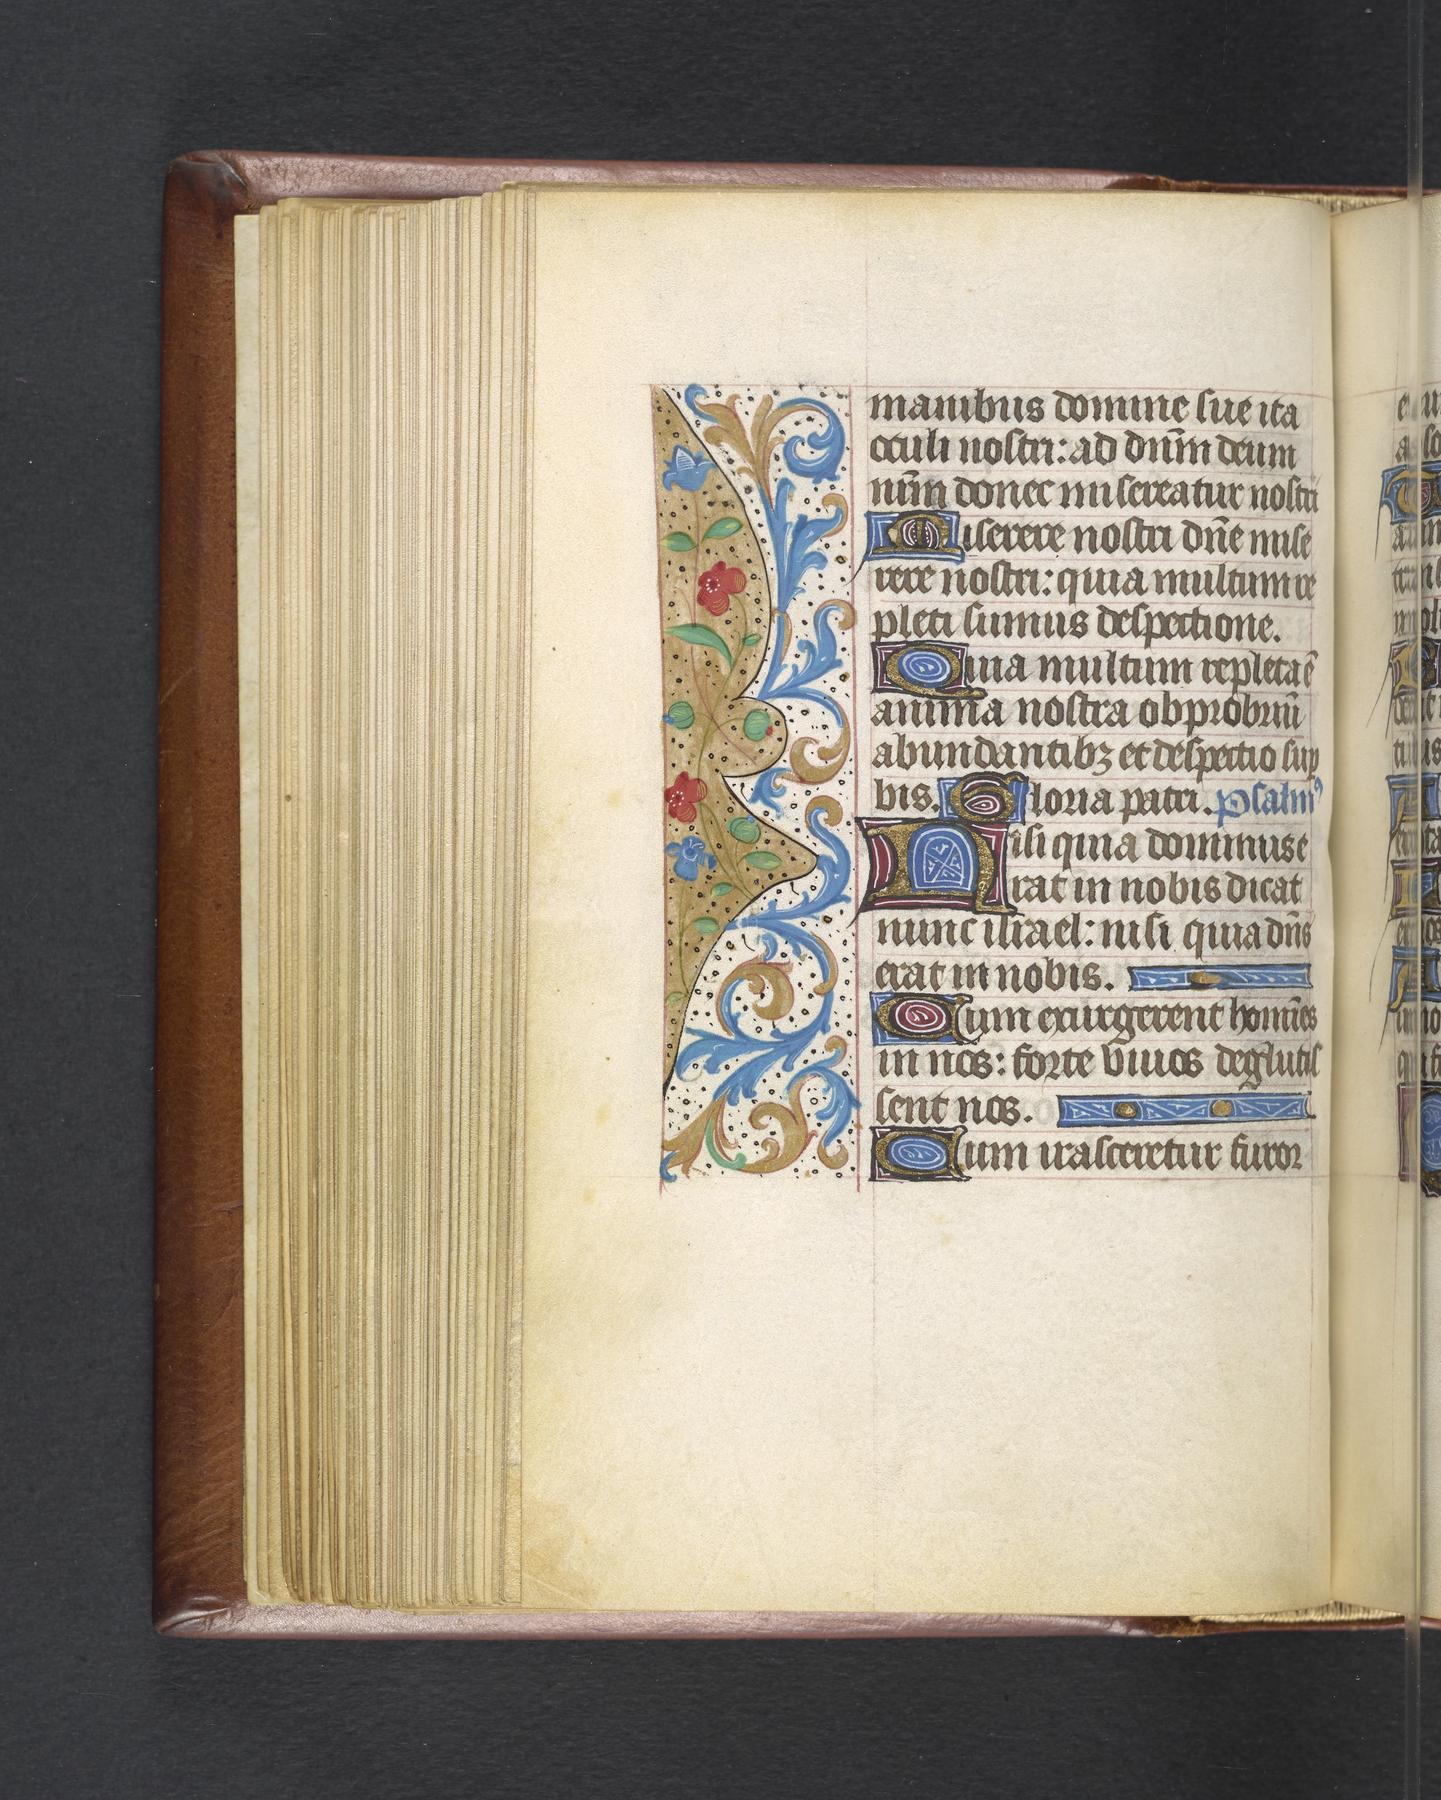 manibus domine sue ita
occuli nostri: ad dn̄m deum
nr̄m donec misereatur nostri
Miserere nostri dn̄e mise
rere nostri: quia multum re
pleti sumus despectione.
Quia multum repleta ē
anima nostra obprobriū
abundantibꝫ et despectio sup
bis. Gloria patri. psalmꝰ
Nisi quia dominus e
rat in nobis dicat
nunc israel: nisi quia dn̄s
erat in nobis.
Cum exurgerent homīes
in nos: forte viuos deglutis
sent nos.
Cum irasceretur furor